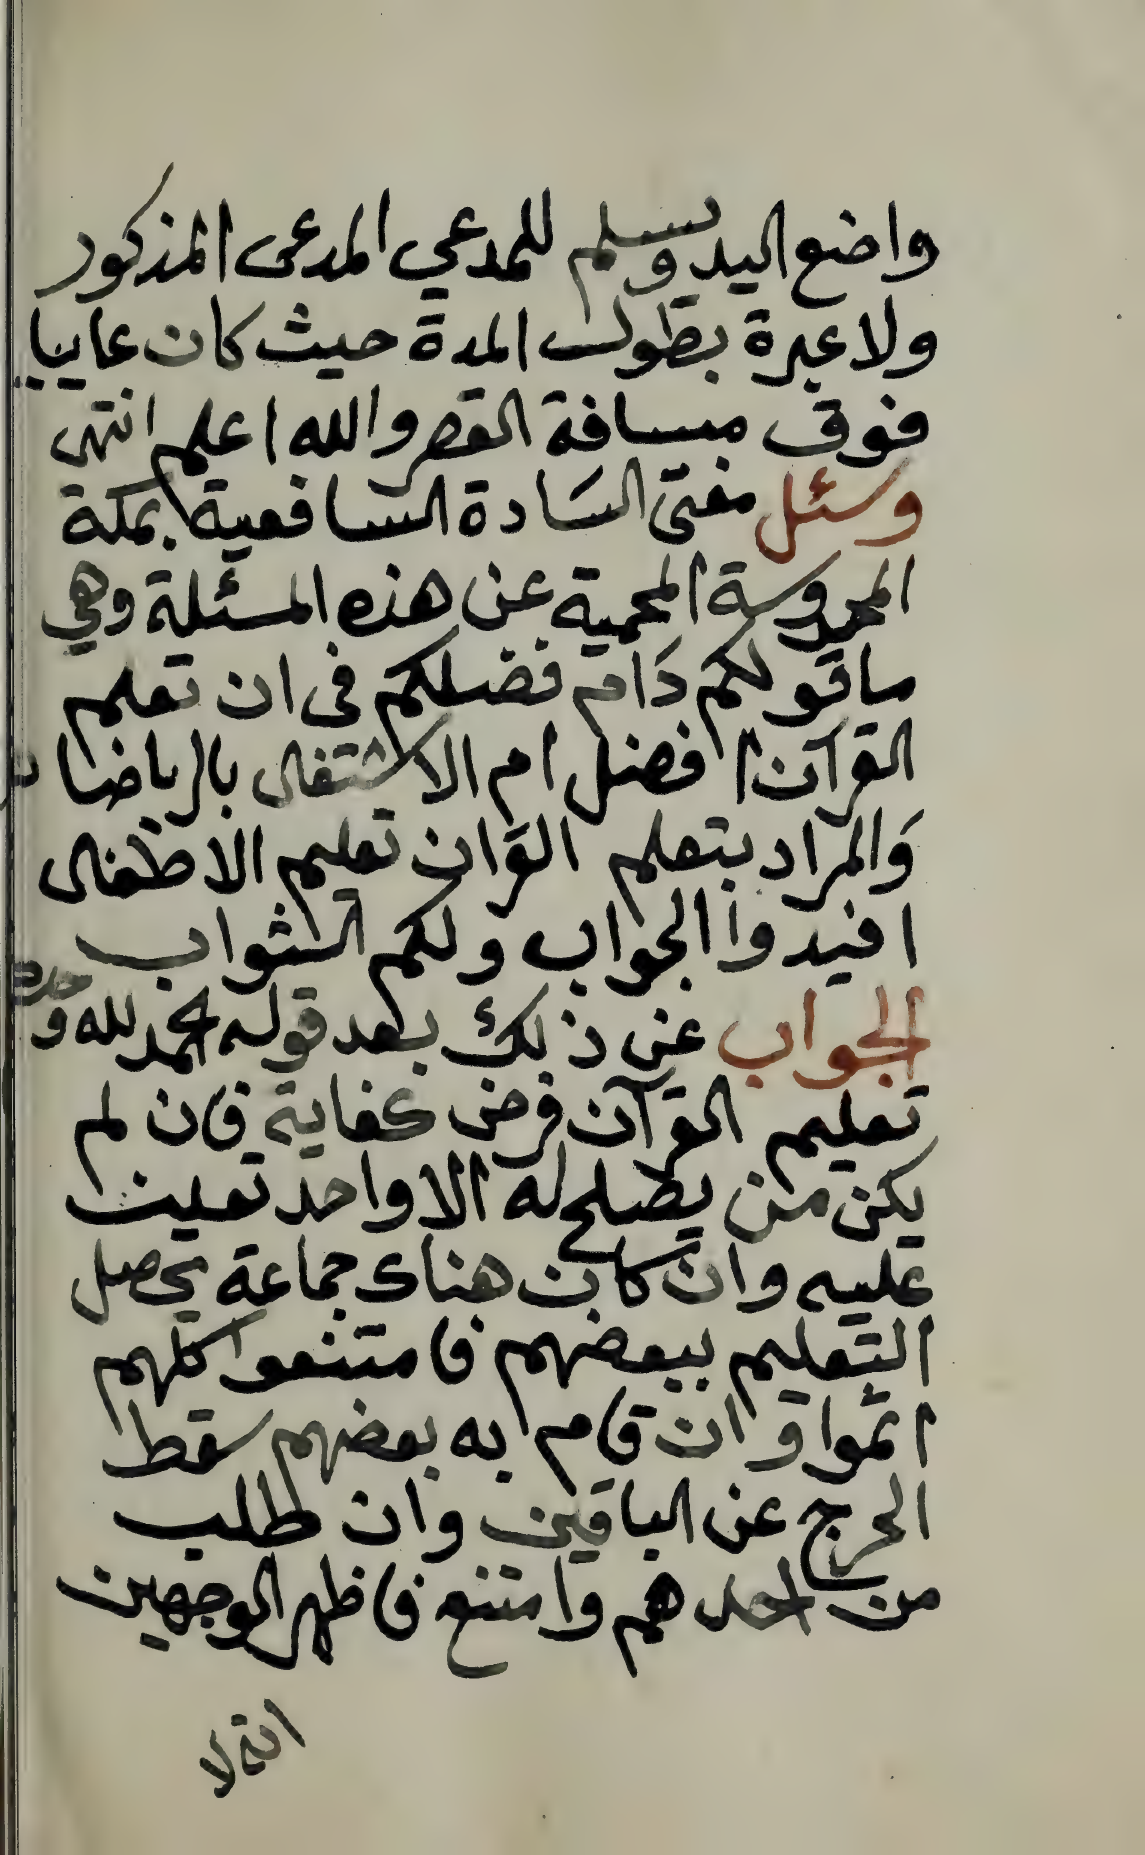 واضع اليد ويسلم للمدعي المدعى المذكور
ولا عبرة بطول المدة حيث كان غايبا
فوق مسافة القصر والله اعلم انتهى
وسئل مفتى السادة الشافعية بمكة
المحروسة المحمية عن هذه المسئلة وهي
ما قولكم دَام فضلكم فى ان تعلم
القرآن افضل ام الاشتغال بالرياضات
وَالمراد بتعلم القرَان تعليم الاطفال
افيدوا الجواب ولكم الثواب
الجواب عن ذلك بعد قوله الحمد لله وحده
تعليم القرآن فرض كفاية فان لم
يكن من يصلح له الا واحد تعين
عليه وان كان هناك جماعة يحصل
التعليم ببعضهم فامتنعوا كلهم
اثموا وان قام به بعضهم سقط
الحرج عن الباقين وان طلب
من احدهم وامتنع فاظهر الوجهين
انه لا